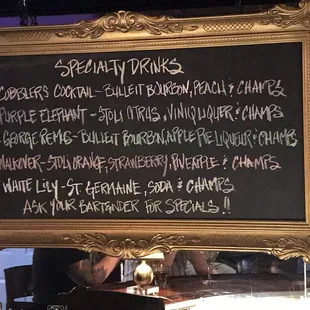 SPECIALTY DRINKS
COBBLERS COCKTAIL - BULLEIT BOURBON, PEACH & CHAMPS
PURPLE ELEPHANT - STOLI CITRUS, VINIQ LIQUER & CHAMPS
-GEORGE REMUS - BULLEIT BOURBON, APPLE PIE LIQUEUR & CHAMPS
WALKOVER - STOLI ORANGE, STRAWBERRY, PINEAPLE & CHAMPS
WHITE LILY - ST GERMAINE, SODA & CHAMPS
ASK YOUR BARTENDER FOR SPECIALS!!